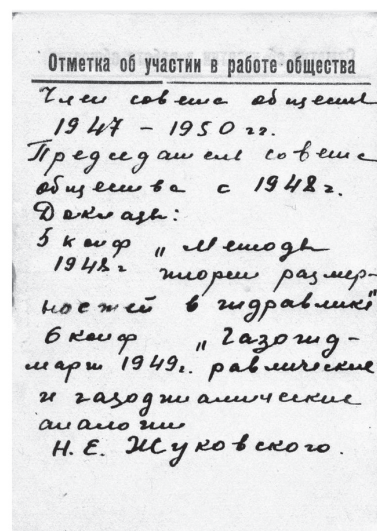 Отметка об участии в работе общества
Член совета общества
1947 – 1950 гг.
Председатель совета
общества с 1948 г.
Доклады:
5 конф „Методы
1948 г теории размер-
ностей в гидравлике"
6 конф „Газогид-
март 1949 г. равлические
и газодинамические
аналогии
Н. Е. Жуковского.